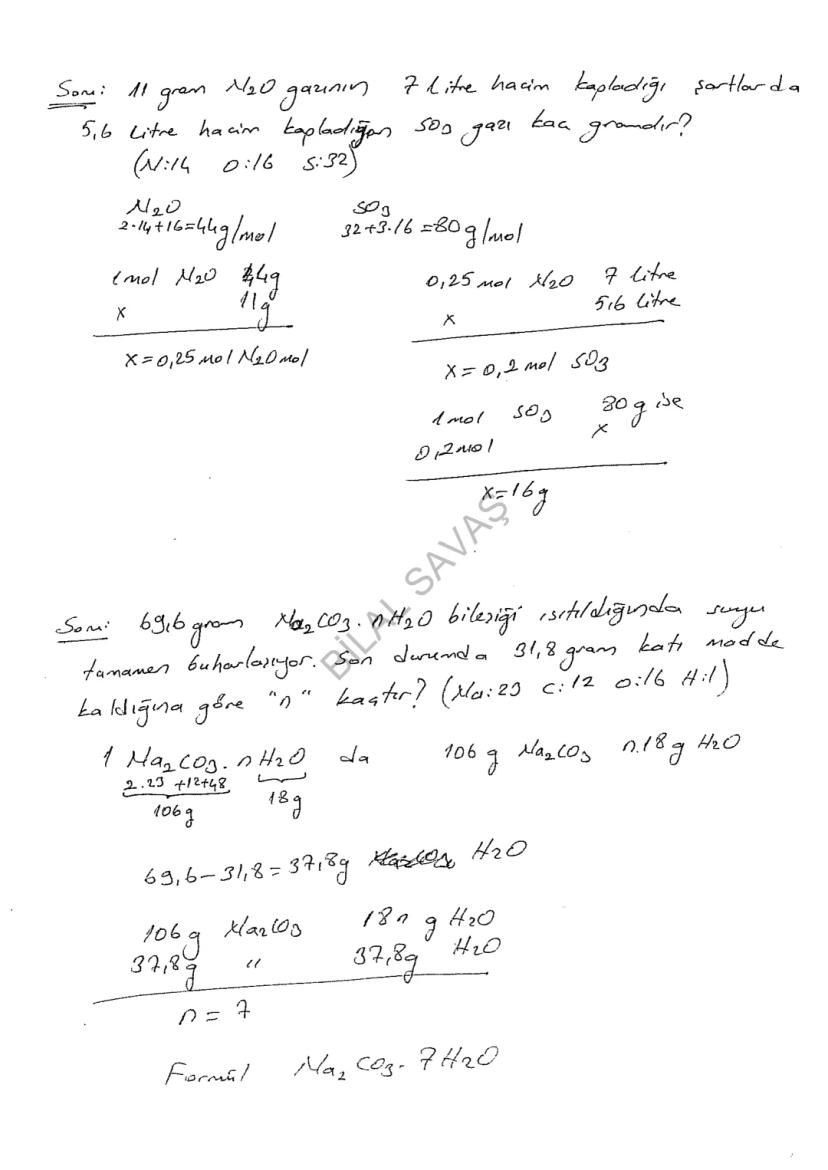 Soru: 11 gram N2O gazının 7 Litre hacim kapladığı şartlarda
5,6 Litre hacim kapladığın SO3 gazı kaç gramdır?
(N:14 O:16 S:32)
N2O SO3
2.14+16=44g/mol 32+3.16=80g/mol
1mol N2O 44g
x 11g
x=0,25 mol N2O mol
0,25 mol N2O 7 litre
x 5,6 litre
x= 0,2 mol SO3
1mol SO3 80g ise
0,2mol x
x=16g
BİLAL SAVAŞ
Soru: 69,6 gram Na2CO3.nH2O bileşiği ısıtıldığında suyu
tamamen buharlaşıyor. Son durumda 31,8 gram katı madde
kaldığına göre "n" kaçtır? (Na:23 C:12 O:16 H:1)
1 Na2CO3.nH2O da 106g Na2CO3 n.18g H2O
2.23+12+48
106g 18g
69,6-31,8=37,8g H2O
106g Na2CO3 18n g H2O
37,8g " 37,8g H2O
n= 7
Formül Na2CO3.7H2O